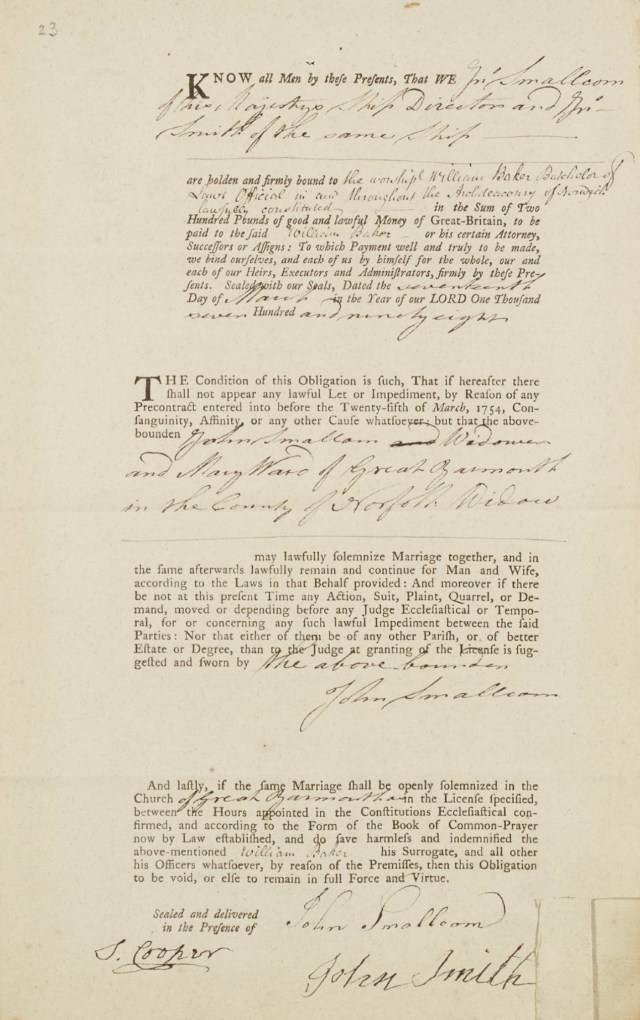 23
KNOW all Men by these Presents, That WE Jnº Smallcom
of his Majestys Ship Director and Jnº
Smith of the same Ship
are holden and firmly bound to the worshipl William Baker Batchelor of
Laws Official in and throughout the Archdeaconry of Norwich
lawfully constituted in the Sum of Two
Hundred Pounds of good and lawful Money of Great-Britain, to be
paid to the said William Baker or his certain Attorney,
Successors or Assigns: To which Payment well and truly to be made,
we bind ourselves, and each of us by himself for the whole, our and
each of our Heirs, Executors and Administrators, firmly by these Pre-
sents. Sealed with our Seals, Dated the seventeenth
Day of March in the Year of our LORD One Thousand
seven Hundred and ninety eight
THE Condition of this Obligation is such, That if hereafter there
shall not appear any lawful Let or Impediment, by Reason of any
Precontract entered into before the Twenty-fifth of March, 1754, Con-
sanguinity, Affinity, or any other Cause whatsoever; but that the above-
bounden John Smallcom and Widower
and Mary Ward of Great Yarmouth
in the County of Norfolk Widow
may lawfully solemnize Marriage together, and in
the same afterwards lawfully remain and continue for Man and Wife,
according to the Laws in that Behalf provided: And moreover if there
be not at this present Time any Action, Suit, Plaint, Quarrel, or De-
mand, moved or depending before any Judge Ecclesiastical or Tempo-
ral, for or concerning any such lawful Impediment between the said
Parties: Nor that either of them be of any other Parish, or of better
Estate or Degree, than to the Judge at granting of the License is sug-
gested and sworn by the above bounden
John Smallcom
And lastly, if the same Marriage shall be openly solemnized in the
Church of Great Yarmouth in the License specified,
between the Hours appointed in the Constitutions Ecclesiastical con-
firmed, and according to the Form of the Book of Common-Prayer
now by Law established, and do save harmless and indemnified the
above-mentioned William Baker his Surrogate, and all other
his Officers whatsoever, by reason of the Premisses, then this Obligation
to be void, or else to remain in full Force and Virtue.
Sealed and delivered
in the Presence of
John Smallcom
S. Cooper
John Smith